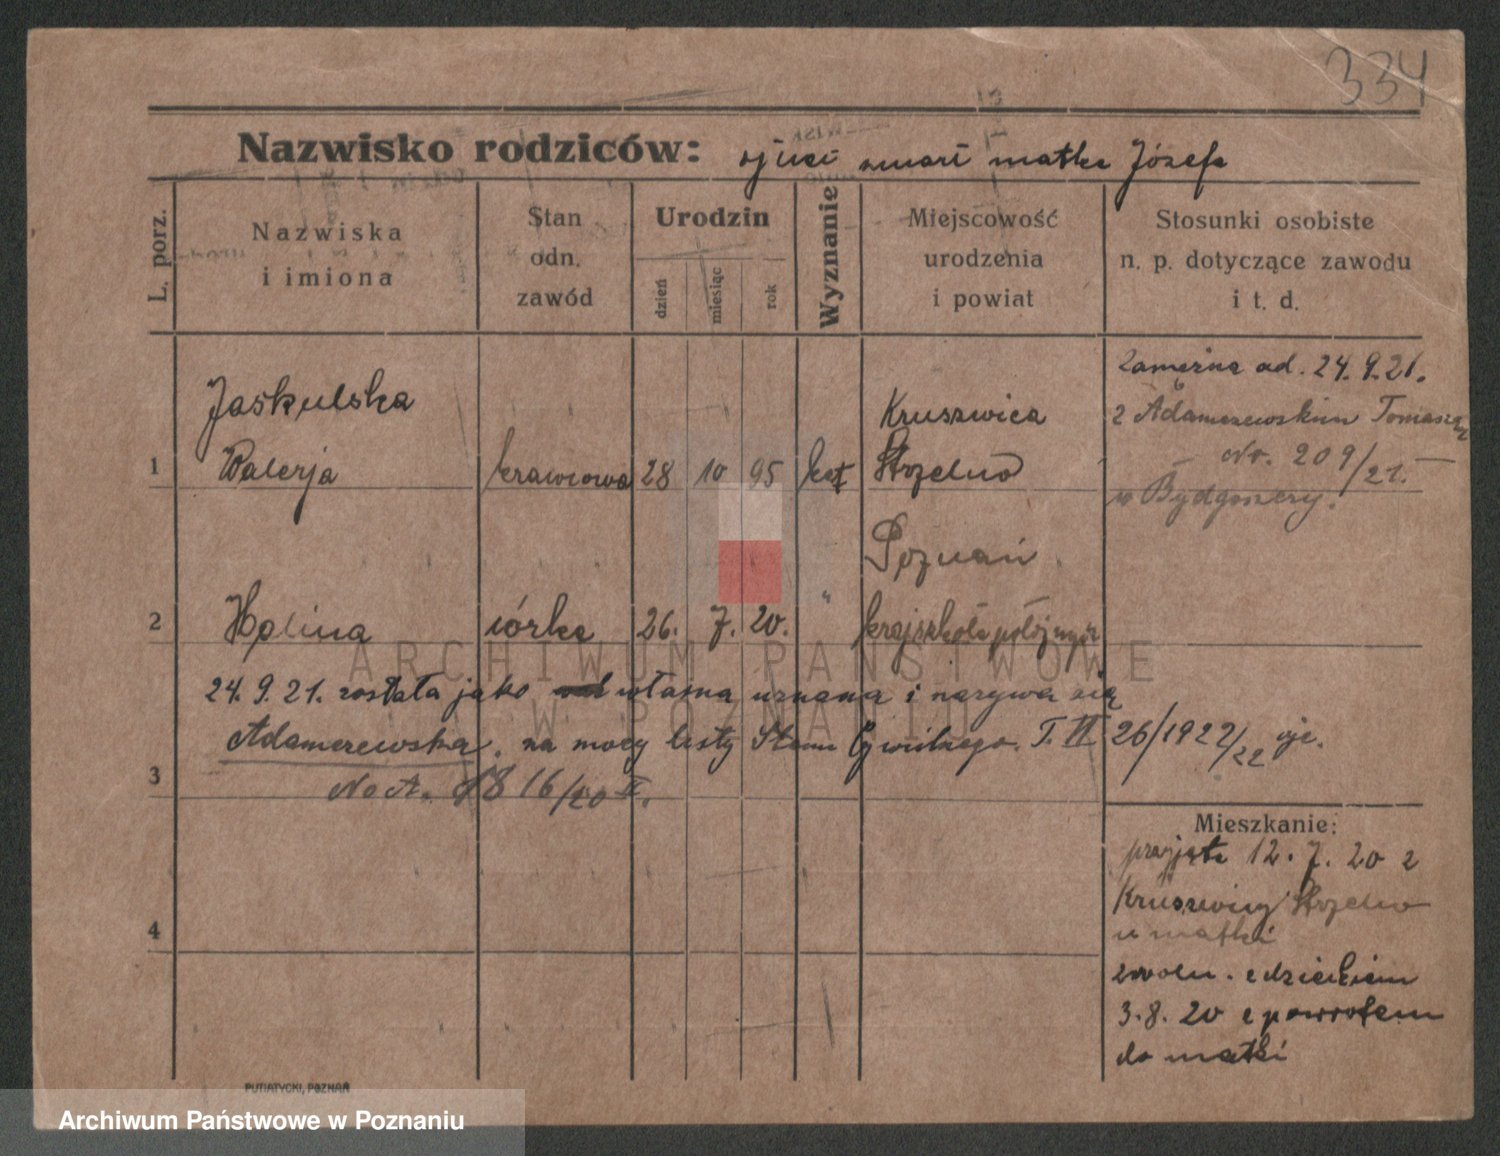 334
Nazwisko rodziców: ojciec zmarł matka Józefa
L. porz.
Nazwiska
i imiona
Stan
odn.
zawód
Urodzin
dzień
miesiąc
rok
Wyznanie
Miejscowość
urodzenia
i powiat
Stosunki osobiste
n. p. dotyczące zawodu
i t. d.
Jaskulska
1 Walerja krawcowa 28 10 95 kat
Kruszwica
Strzelno
Zamężna od. 24.9.21.
z Adamczewskim Tomaszem
No. 209/21.
w Bydgoszczy.
2 Halina córka 26. 7. 20. "
Poznań
kraj szkoła położnych
24.9.21. została jako własna uznana i nazywa się
Adamczewska, na mocy listy Stanu Cywilnego. T. VI 26/1922/22
3
No A. 1816/20 V.
Mieszkanie:
przyjęta 12.7.20 z
Kruszwicy Strzelno
u matki
zwoln. z dzieckiem
3.8.20 z powrotem
do matki
4
PUTIATYCKI, POZNAŃ
ARCHIWUM PAŃSTWOWE
W POZNANIU
Archiwum Państwowe w Poznaniu